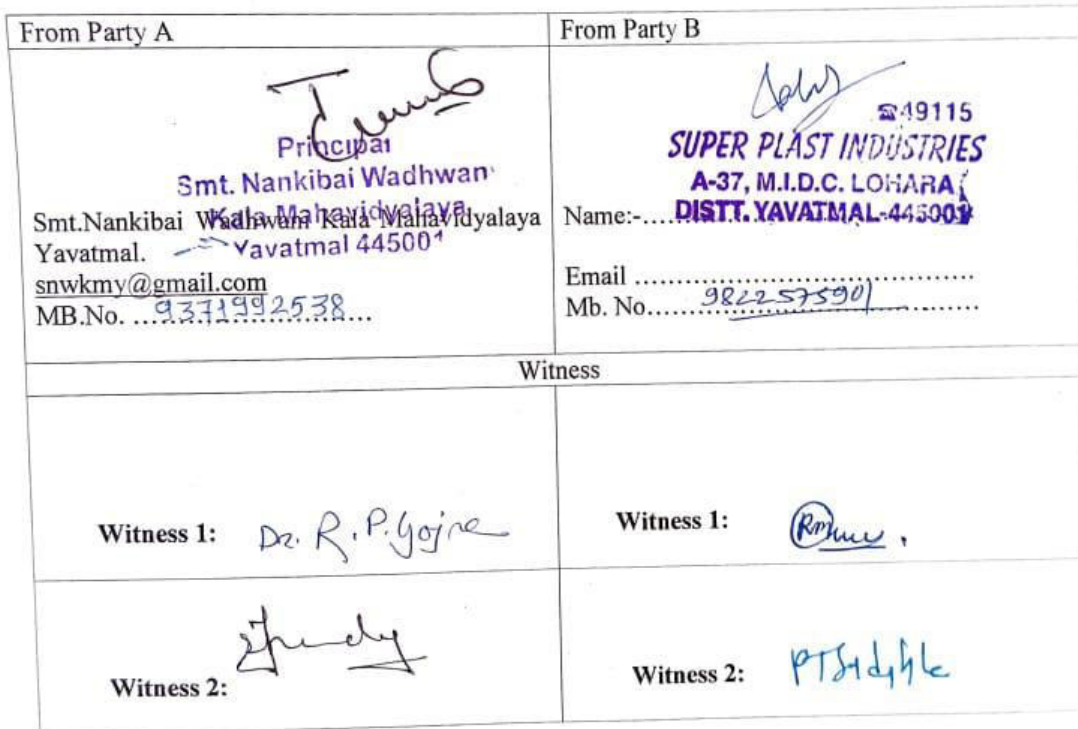 From Party A
From Party B
Principal
Smt. Nankibai Wadhwan
Kala Mahavidyalaya
Yavatmal 445001
Smt.Nankibai Wadhwani Kala Mahavidyalaya
Yavatmal.
snwkmy@gmail.com
MB.No. ...9371992538...
☎49115
SUPER PLAST INDUSTRIES
A-37, M.I.D.C. LOHARA
DISTT. YAVATMAL-445001
Name:-
Email ....................................
Mb. No......9822575901..........
Witness
Witness 1: Dr. R. P. Gojre
Witness 1:
Witness 2:
Witness 2: